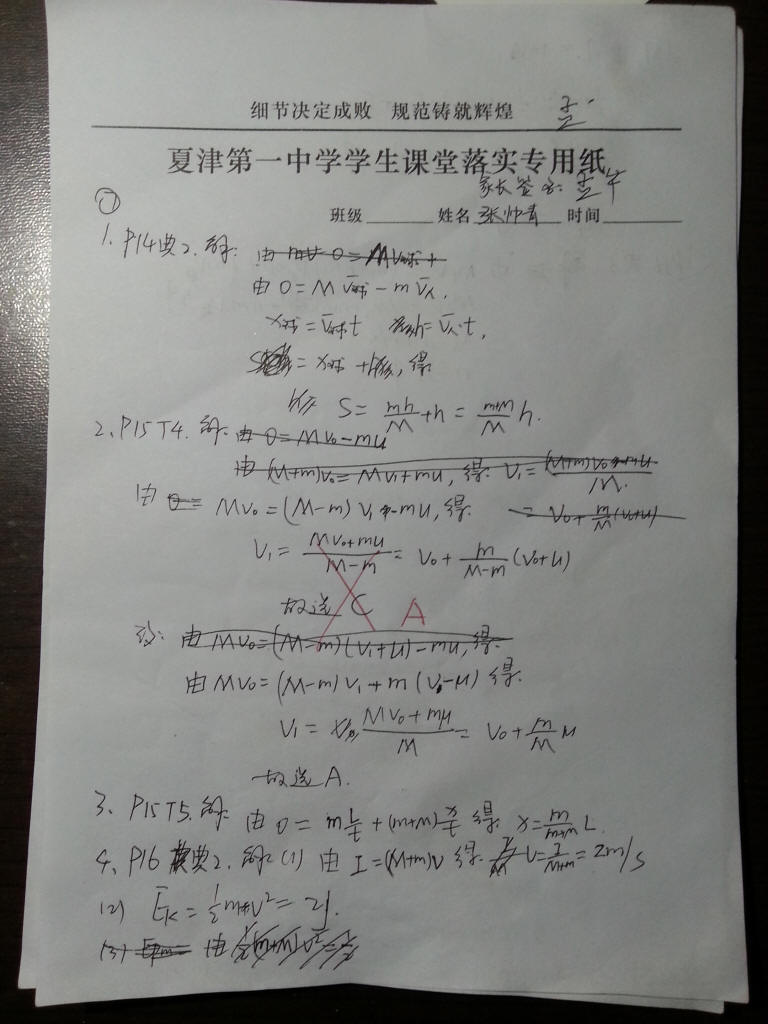 细节决定成败 规范铸就辉煌
夏津第一中学学生课堂落实专用纸
家长签名:
班级 姓名 张帅青 时间
①
1. P14典2. 解:
由 0 = M v̄球 - m v̄人,
x球 = v̄球t h = v̄人t,
S = x球 + h, 得
S = mh/M + h = (m+M)/M h.
2、P15 T4. 解: 由 0 = Mv₀ - mu
由 (M+m)v₀ = Mv₁ + mu, 得: V₁ = (M+m)v₀ - mu / M.
由 Mv₀ = (M-m)v₁ - mu, 得: = v₀ + m/M (v₀+u)
V₁ = (Mv₀+mu)/(M-m) = v₀ + m/(M-m) (v₀+u)
故选 C A
改: 由 Mv₀ = (M-m)(v₁+u) - mu, 得:
由 Mv₀ = (M-m)v₁ + m(v₁-u) 得:
V₁ = (Mv₀+mu)/M = v₀ + m/M u
故选 A.
3、P15 T5. 解: 由 0 = m L/t + (m+M) x/t 得: x = m/(m+M) L.
4、P16 典2. 解: (1) 由 I = (M+m)v 得: v = I/(M+m) = 2m/s
(2) Eₖ = ½ m v² = 2J.
(3) 由